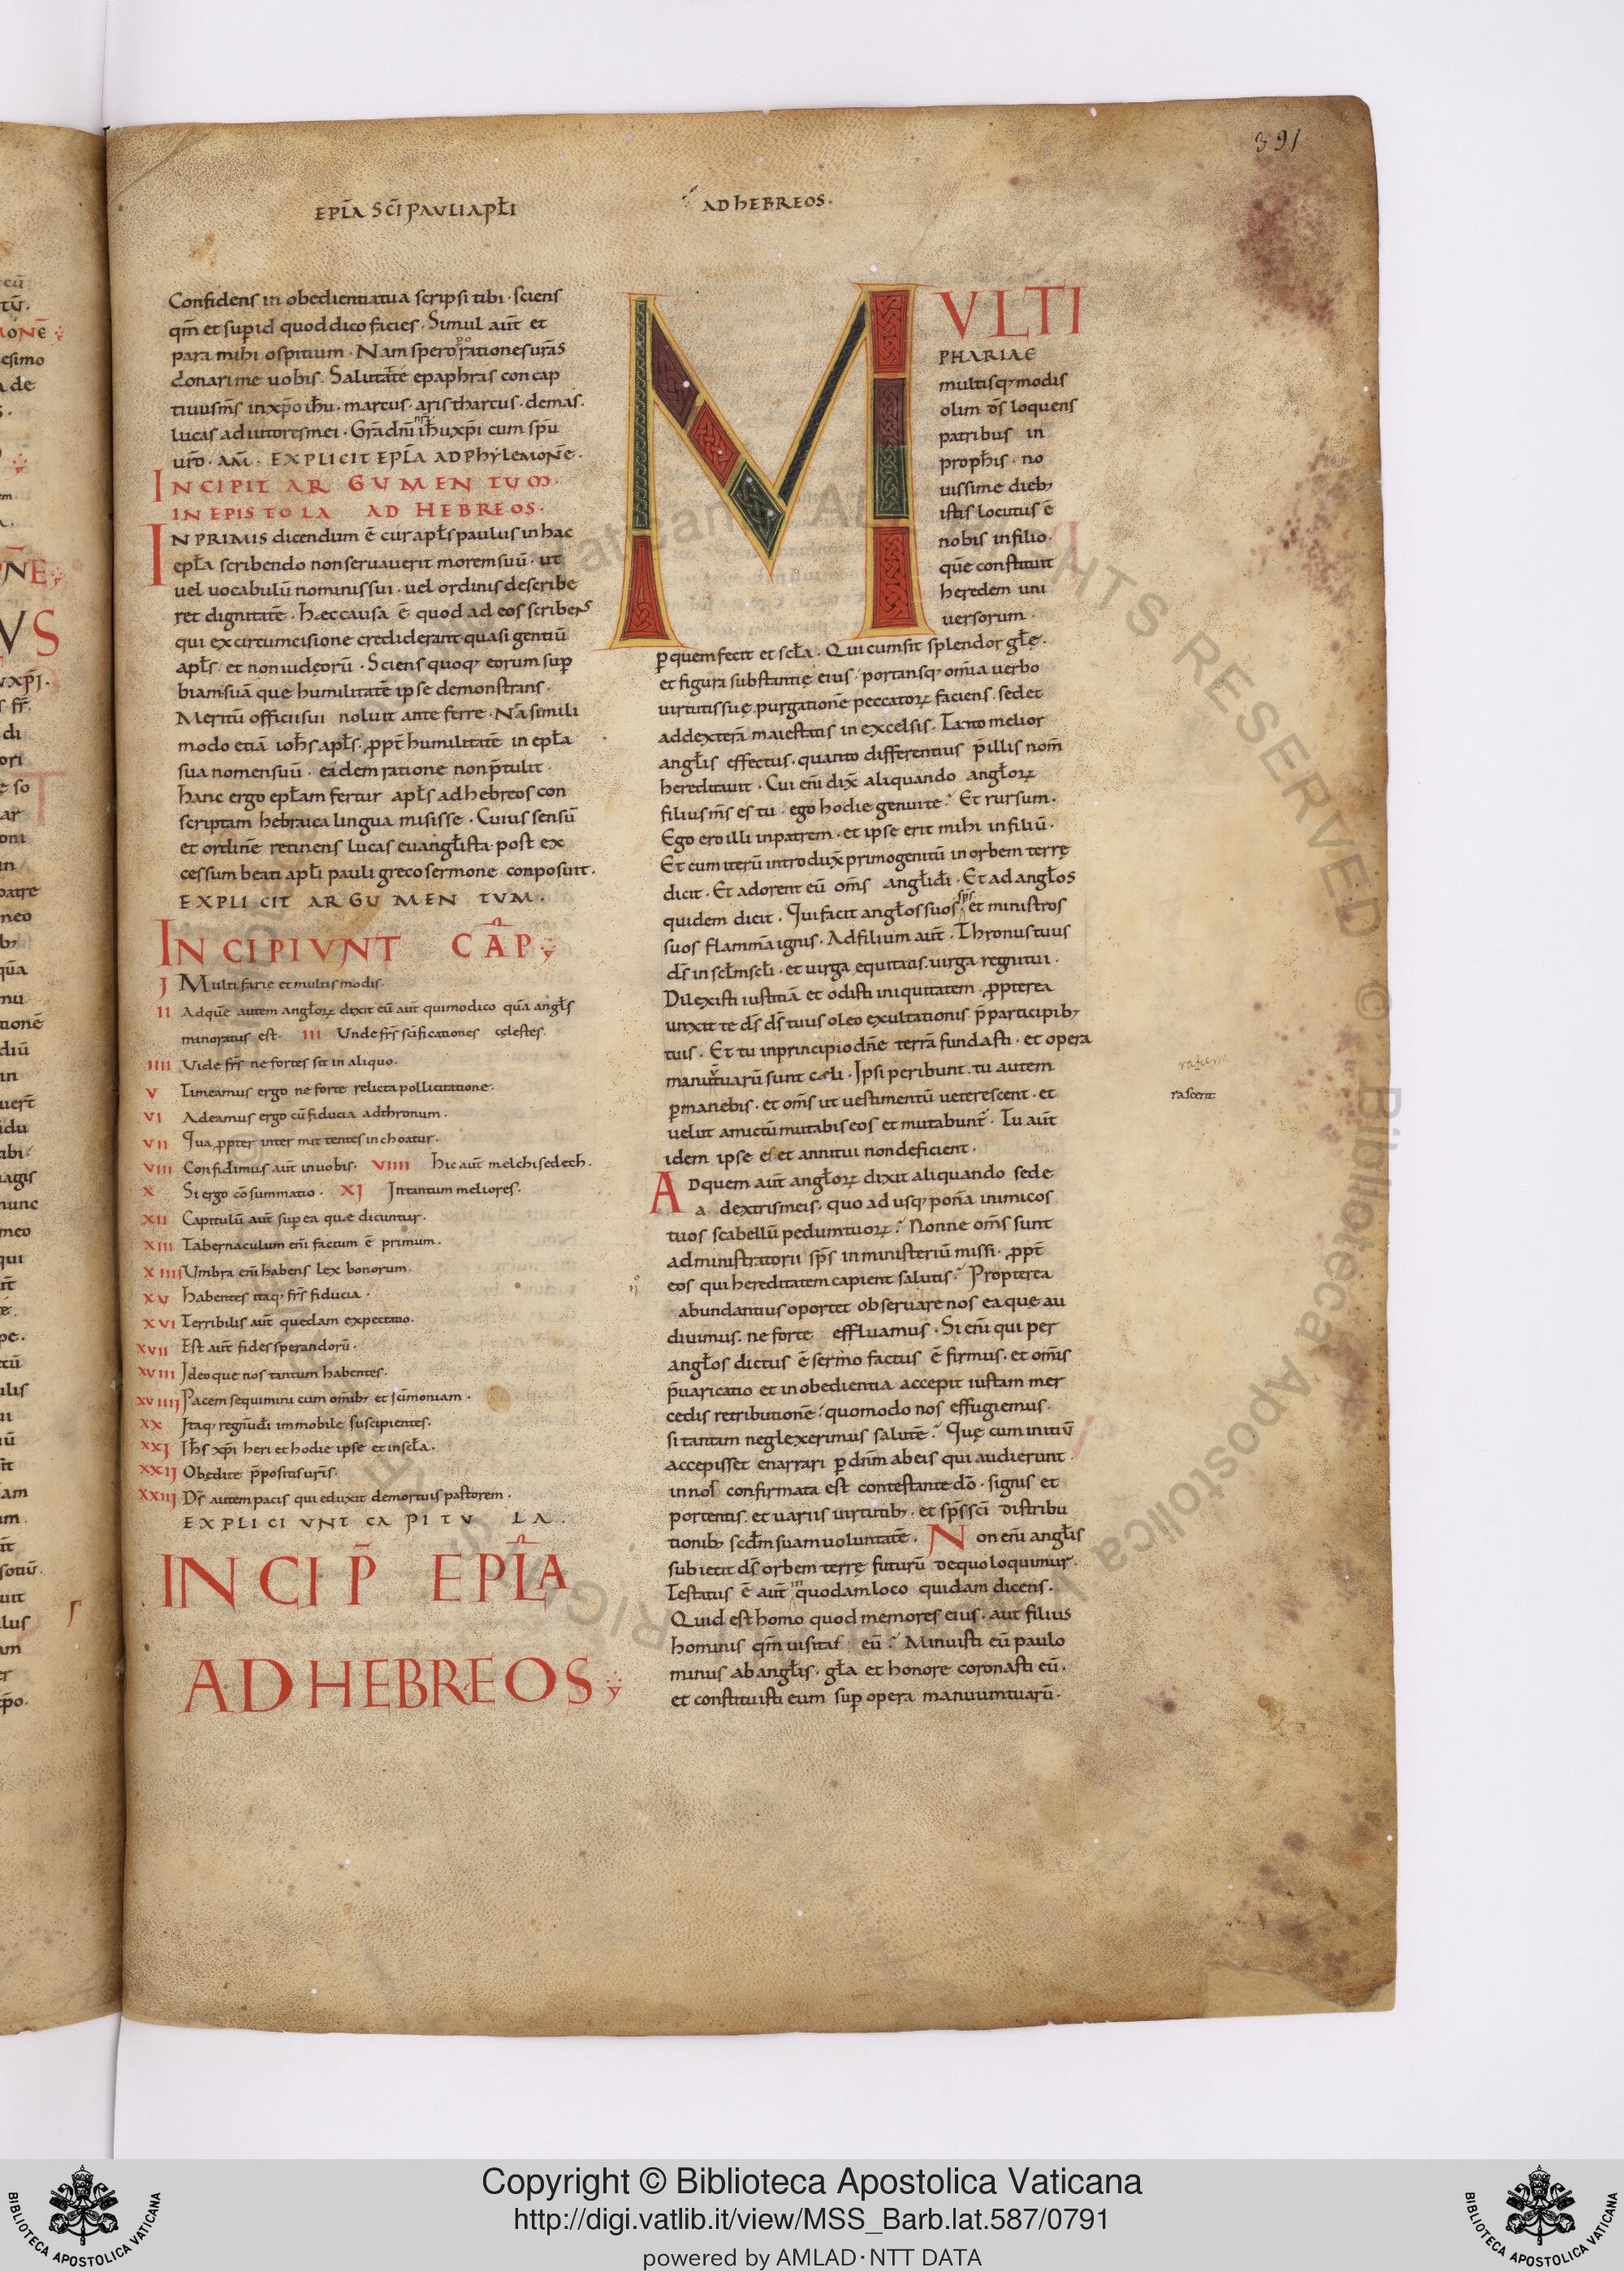 391
EPL̄A SC̄I PAVLI APL̄I
AD HEBREOS.
Confidens in obedientia tua scripsi tibi · sciens
qm̄ et sup id quod dico facies · Simul aut̄ et
para mihi ospitium · Nam spero rationes ur̄as
donari me uobis. Salutat̄ te epaphras con cap
tiuus m̄s in xp̄o ih̄u · marcus · aristharcus · demas.
lucas adiutores mei · Gr̄a dn̄i nr̄i ih̄u xp̄i cum sp̄u
ur̄o · am̄. EXPLICIT EPL̄A AD PHYLEMONĒ.
INCIPIT ARGUMENTUM.
IN EPISTOLA AD HEBREOS.
IN PRIMIS dicendum ē cur apl̄s paulus in hac
epl̄a scribendo non seruauerit morem suū · ut
uel uocabulū nominis sui · uel ordinis describe
ret dignitatē · Hæc causa ē quod ad eos scribens
qui ex circumcisione crediderant quasi gentiū
apl̄s · et non iudęorū · Sciens quoq; eorum sup
biam suā que humilitatē ipse demonstrans ·
Meritū officii sui noluit ante ferre · Nā simili
modo etiā ioh̄s apl̄s · ꝓpt̄ humilitatē in epl̄a
sua nomen suū · eadem ratione non p̄tulit ·
hanc ergo epl̄am fertur apl̄s ad hebreos con
scriptam hebraica lingua misisse · Cuius sensū
et ordinē retinens lucas euangl̄ista post ex
cessum beati apl̄i pauli greco sermone conposuit ·
EXPLICIT ARGUMENTUM.
INCIPIVNT CAP̄;
I Multifarie et multis modis.
II Ad quē autem angl̄oꝝ dixit eū aut̄ qui modico quā angl̄s
minoratus est. III Unde fr̄s sc̄ificationes cęlestes.
IIII Uide fr̄s ne fortes sit in aliquo.
V Timeamus ergo ne forte relicta pollicitatione.
VI Adeamus ergo cū fiducia ad thronum.
VII Qua ꝓpter inter mittentes inchoatur.
VIII Confidimus aut̄ in uobis. VIIII hic aut̄ melchisedech.
X Si ergo cōsummatio. XI In tantum meliores.
XII Capitulū aut̄ sup ea quæ dicuntur.
XIII Tabernaculum eni̅ factum ē primum.
XIIII Umbra eni̅ habens lex bonorum.
XV habentes itaq; fr̄s fiducia.
XVI Terribilis aut̄ quędam expectatio.
XVII Est aut̄ fides sperandorū.
XVIII Ideoque nos tantum habentes.
XVIIII Pacem sequimini cum omib; et sc̄imoniam.
XX Itaq; regnū di̅ immobile suscipientes.
XXI Ih̄s xp̄i heri et hodie ipse et in scl̄a.
XXII Obędite p̄positis ur̄is.
XXIII D̄s autem pacis qui eduxit de mortuis pastorem.
EXPLICIVNT CAPITVLA.
INCIP̄ EPL̄A
AD HEBREOS;
MVLTI
PHARIAE
multisq; modis
olim d̄s loquens
patribus in
proph̄is · no
uissime dieb;
istis locutus ē
nobis in filio ·
quē constituit
heredem uni
uersorum ·
ꝑ quem fecit et scl̄a · Qui cum sit splendor gl̄ę ·
et figura substantię eius · portansq; om̄ia uerbo
uirtutis suę purgationē peccatoꝝ faciens · sedet
ad dexterā maiestatis in excelsis · Tanto melior
angl̄is effectus · quanto differentius p̄ illis nom̄
hereditauit · Cui eni̅ dix̄ aliquando angl̄oꝝ
filius m̄s es tu · ego hodie genui te? Et rursum ·
Ego ero illi in patrem · et ipse erit mihi in filiū ·
Et cum iterū introdux̄ primogenitū in orbem terrę
dicit · Et adorent eū om̄s angl̄i di̅ · Et ad angl̄os
quidem dicit · Qui facit angl̄os suos sp̄s et ministros
suos flammā ignis · Ad filium aut̄ · Thronus tuus
d̄s in scl̄m scl̄i · et uirga equitatis · uirga regni tui ·
Dilexisti iustitiā et odisti iniquitatem · ꝓpterea
unxit te d̄s d̄s tuus oleo exultationis p̄ participib;
tuis · Et tu in principio dn̄e terrā fundasti · et opera
manuū tuarū sunt cæli · Ipsi peribunt · tu autem
ꝑmanebis · et om̄s ut uestimentū ueterescent · et
rascent
uelut amictū mutabis eos et mutabunt̄ · Tu aut̄
idem ipse es et anni tui non deficient ·
AD quem aut̄ angl̄oꝝ dixit aliquando sede
a dextris meis · quo ad usq; ponā inimicos
tuos scabellū pedum tuoꝝ? Nonne om̄s sunt
administratorii sp̄s in ministeriū missi · ꝓpt̄
eos qui hereditatem capient salutis? Propterea
abundantius oportet obseruare nos ea que au
diuimus · ne forte effluamus · Si eni̅ qui per
angl̄os dictus ē sermo factus ē firmus · et om̄is
p̄uaricatio et inobedientia accepit iustam mer
cedis retributionē · quomodo nos effugiemus ·
si tantam neglexerimus salutē? Quę cum initiū
accepisset enarrari ꝑ dn̄m ab eis qui audierunt ·
in nos confirmata est contestante dō · signis et
portentis · et uariis uirtutib; · et sp̄s sc̄i distribu
tionib; scd̄m suam uoluntatē · Non eni̅ angl̄is
subiecit d̄s orbem terrę futurū de quo loquimur ·
Testatus ē aut̄ in quodam loco quidam dicens ·
Quid est homo quod memores eius · aut filius
hominis qm̄ uisitas eū? Minuisti eū paulo
minus ab angl̄is · gl̄a et honore coronasti eū ·
et constituisti eum sup opera manuum tuarū ·
Copyright © Biblioteca Apostolica Vaticana
http://digi.vatlib.it/view/MSS_Barb.lat.587/0791
powered by AMLAD·NTT DATA
BIBLIOTECA APOSTOLICA VATICANA
BIBLIOTECA APOSTOLICA VATICANA